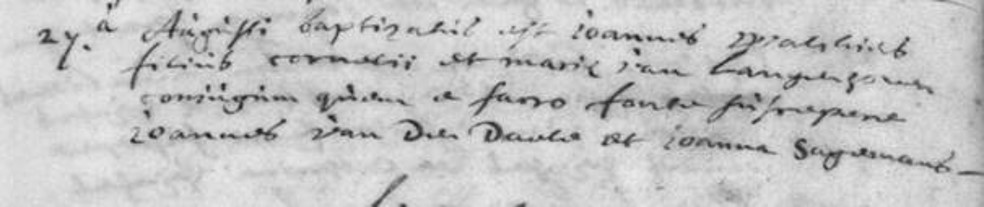 27.a Augusti baptizatus est ioannes
filius cornelii et mariæ van Langen
coniugum quem e sacro fonte suscepere
ioannes van Den et ioanna Sagemans